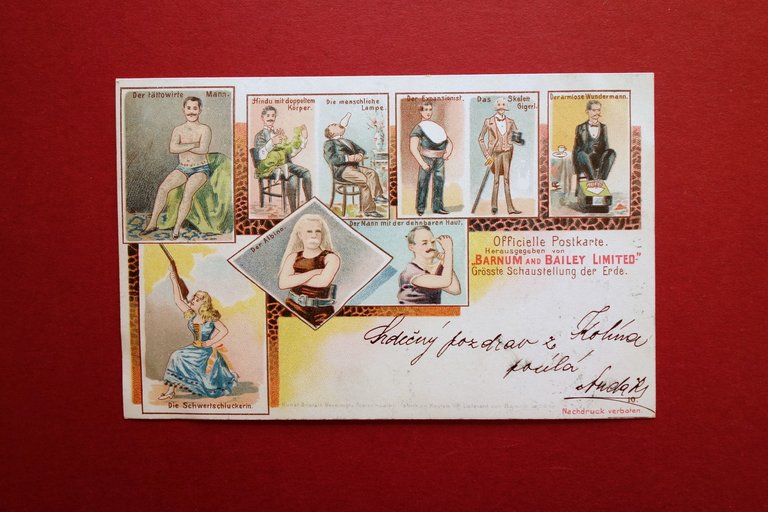 Der tätowirte Mann.
Hindu mit doppeltem
Körper.
Die menschliche
Lampe.
Der Expansionist.
Das Skelett
Gigerl.
Der armlose Wundermann.
Der Albino.
Der Mann mit der dehnbaren Haut.
Officielle Postkarte.
Herausgegeben von
„BARNUM AND BAILEY LIMITED"
Grösste Schaustellung der Erde.
Srdečný pozdrav z Kolína
posílá
Die Schwertschluckerin.
Nachdruck verboten.